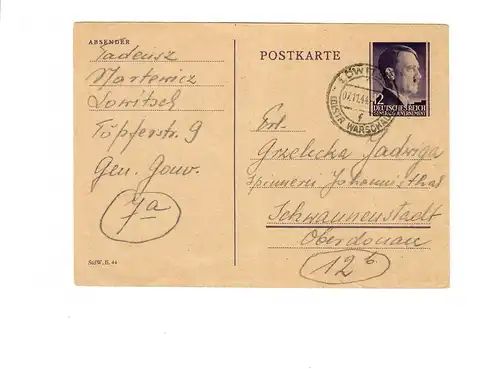 ABSENDER
Tadeusz
Martewicz
Lowitsch
Töpferstr. 9
Gen. Gouv.
7a
StdW. II. 44
POSTKARTE
12
DEUTSCHES REICH
GENERALGOUVERNEMENT
07.11.44
(DISTR WARSCHAU)
f
Frl.
Grzelicka Jadwiga
Spinnerei Johannisthal
Schwannenstadt
Oberdonau
12b